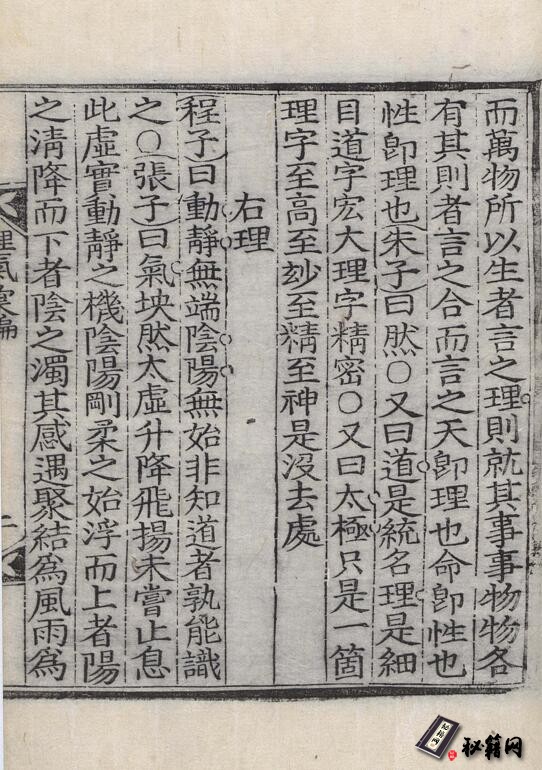 而萬物所以生者言之理則就其事事物物各
有其則者言之合而言之天卽理也命卽性也
性卽理也(朱子)曰然○又曰道是統名理是細
目道字宏大理字精密○又曰太極只是一箇
理字至高至玅至精至神是沒去處
右理
程子)曰動靜無端陰陽無始非知道者孰能識
之○(張子)曰氣坱然太虛升降飛揚未嘗止息
此虛實動靜之機陰陽剛柔之始浮而上者陽
之淸降而下者陰之濁其感遇聚結為風雨為
理氣彙編
二
秘籍网